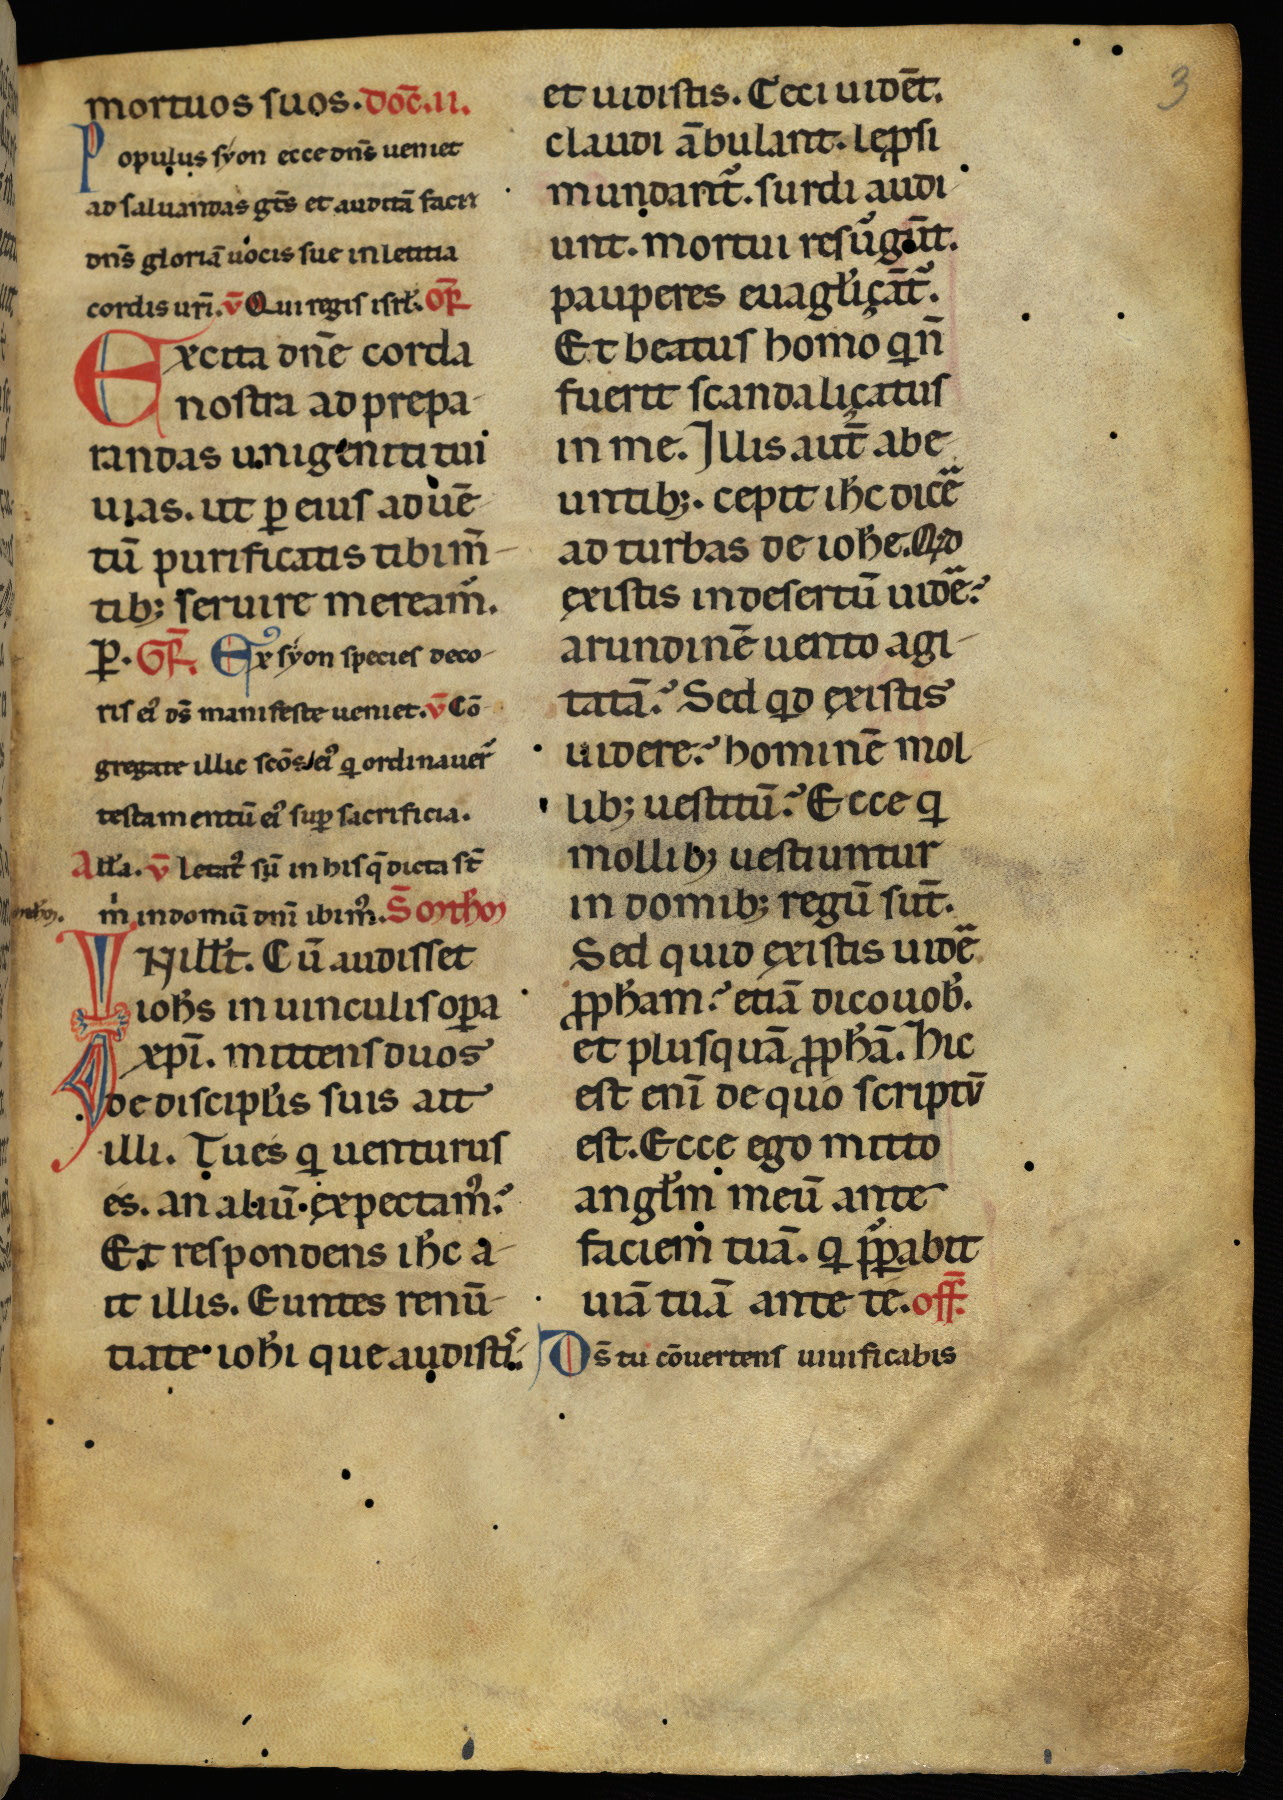 3
mortuos suos. Doc̄. II.
Populus syon ecce dn̄s ueniet
ad saluandas gēs et auditā faciet
dn̄s gloriā uocis sue in letitia
cordis ur̄i. v̄ Qui regis isrl̄. Or̄
Excita dn̄e corda
nostra ad prepa-
randas unigeniti tui
uias. ut ꝑ eius aduē-
tū purificatis tibi m̄-
tibꝫ seruire meream̄.
ꝑ. Gr̄. Ex syon species deco-
ris ei᾽ ds̄ manifeste ueniet. v̄ Cō
gregate illic scōs ei᾽ q̇ ordinauer̄
testamentū ei᾽ suꝑ sacrificia.
All'a. v̄ letat᾽ sū in his q̄ dicta st̄
m̓ in domū dn̄i ibim᾽. S̄
IN ill̄t. Cū audisset
ioh̄s in uinculis oꝑa
xp̄i. mittens duos
de discipl̄is suis ait
illi. Tu es q̇ uenturus
es. an aliū expectam᾽?
Et respondens ih̄c a-
it illis. Euntes renū-
tiate ioh̄i que audisti᾽s
et uidistis. Ceci uidēt.
claudi ābulant. lep̄si
mundant᾽. surdi audi
unt. mortui resūgūt.
pauperes euagl̄içāt᾽.
Et beatus homo q̇ n̄
fuerit scandaliçatus
in me. Illis aut̄ abe
untibꝫ. cepit ih̄c dicē
ad turbas de ioh̄e. Qd
existis in desertū uidē?
arundinē uento agi-
tatā? Sed qd existis
uidere? hominē mol
libꝫ uestitū? Ecce q̇
mollibꝫ uestiuntur
in domibꝫ regū sūt.
Sed quid existis uidē
ꝓph̄am? etiā dico uob̄.
et plusquā ꝓph̄ā. Hic
est enī de quo scriptū
est. Ecce ego mitto
angl̄m meū ante
faciem tuā. q̇ p̄ꝑabit
uiā tuā ante te. off̄.
Ds̄ tu cōuertens uiuificabis